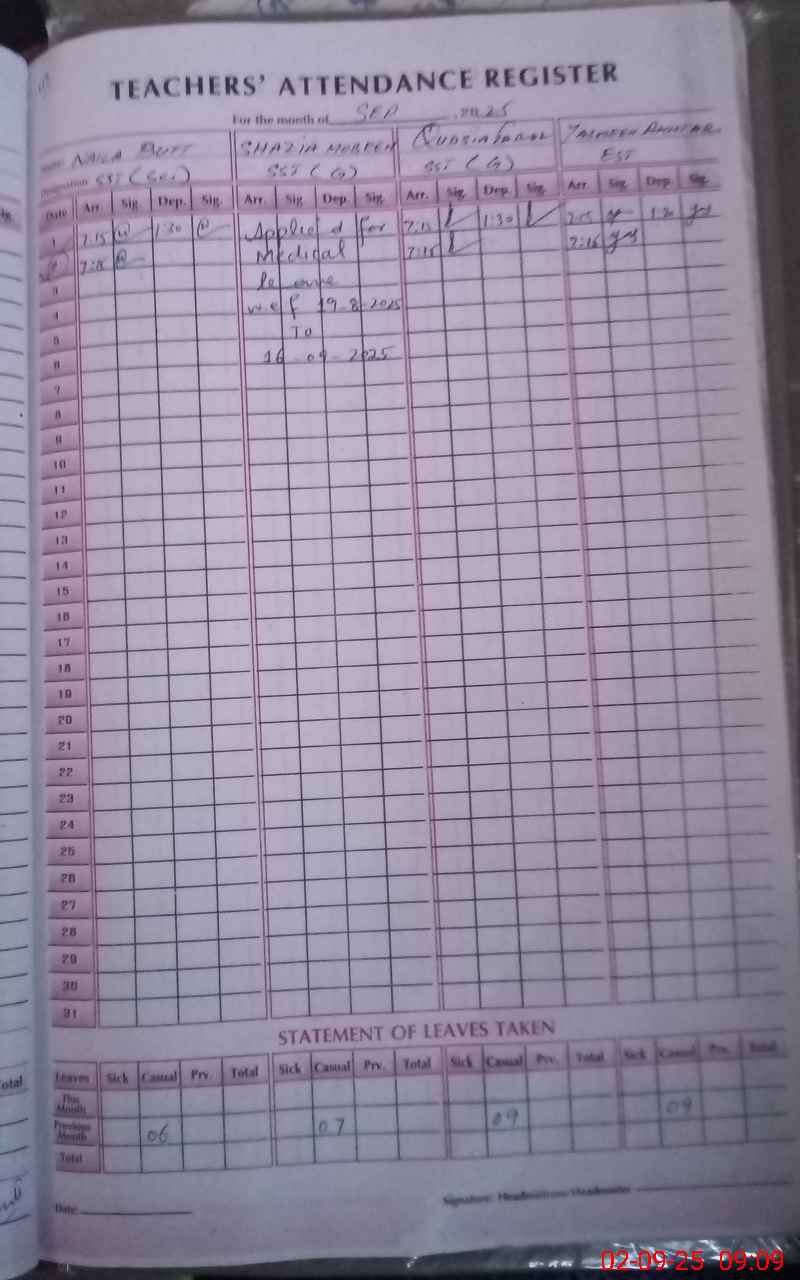 TEACHERS' ATTENDANCE REGISTER
For the month of SEP 2025
Name: NAILA BUTT SHAZIA NOREEN QUDSIA YASMEEN AKHTAR
Designation SST (Sci) SST (G) SST (G) EST
Date Arr. Sig. Dep. Sig. Arr. Sig. Dep. Sig. Arr. Sig. Dep. Sig. Arr. Sig. Dep. Sig.
1 7:15 1:30 Applied for 7:15 1:30 7:15 1:30
2 7:15 Medical 7:15 7:15
3 leave
4 w.e.f 19-8-2025
5 To
6 16-09-2025
7
8
9
10
11
12
13
14
15
16
17
18
19
20
21
22
23
24
25
26
27
28
29
30
31
STATEMENT OF LEAVES TAKEN
Leaves Sick Casual Prv. Total Sick Casual Prv. Total Sick Casual Prv. Total Sick Casual Prv. Total
This Month
Previous Month 06 07 09 09
Total
Date:
Signature: Headmistress/Headmaster
otal
02-09-25 09:09